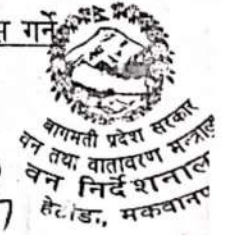 स गर्ने
बागमती प्रदेश सरकार
वन तथा वातावरण मन्त्राल
वन निर्देशनाल
हेटौंडा, मकवानप